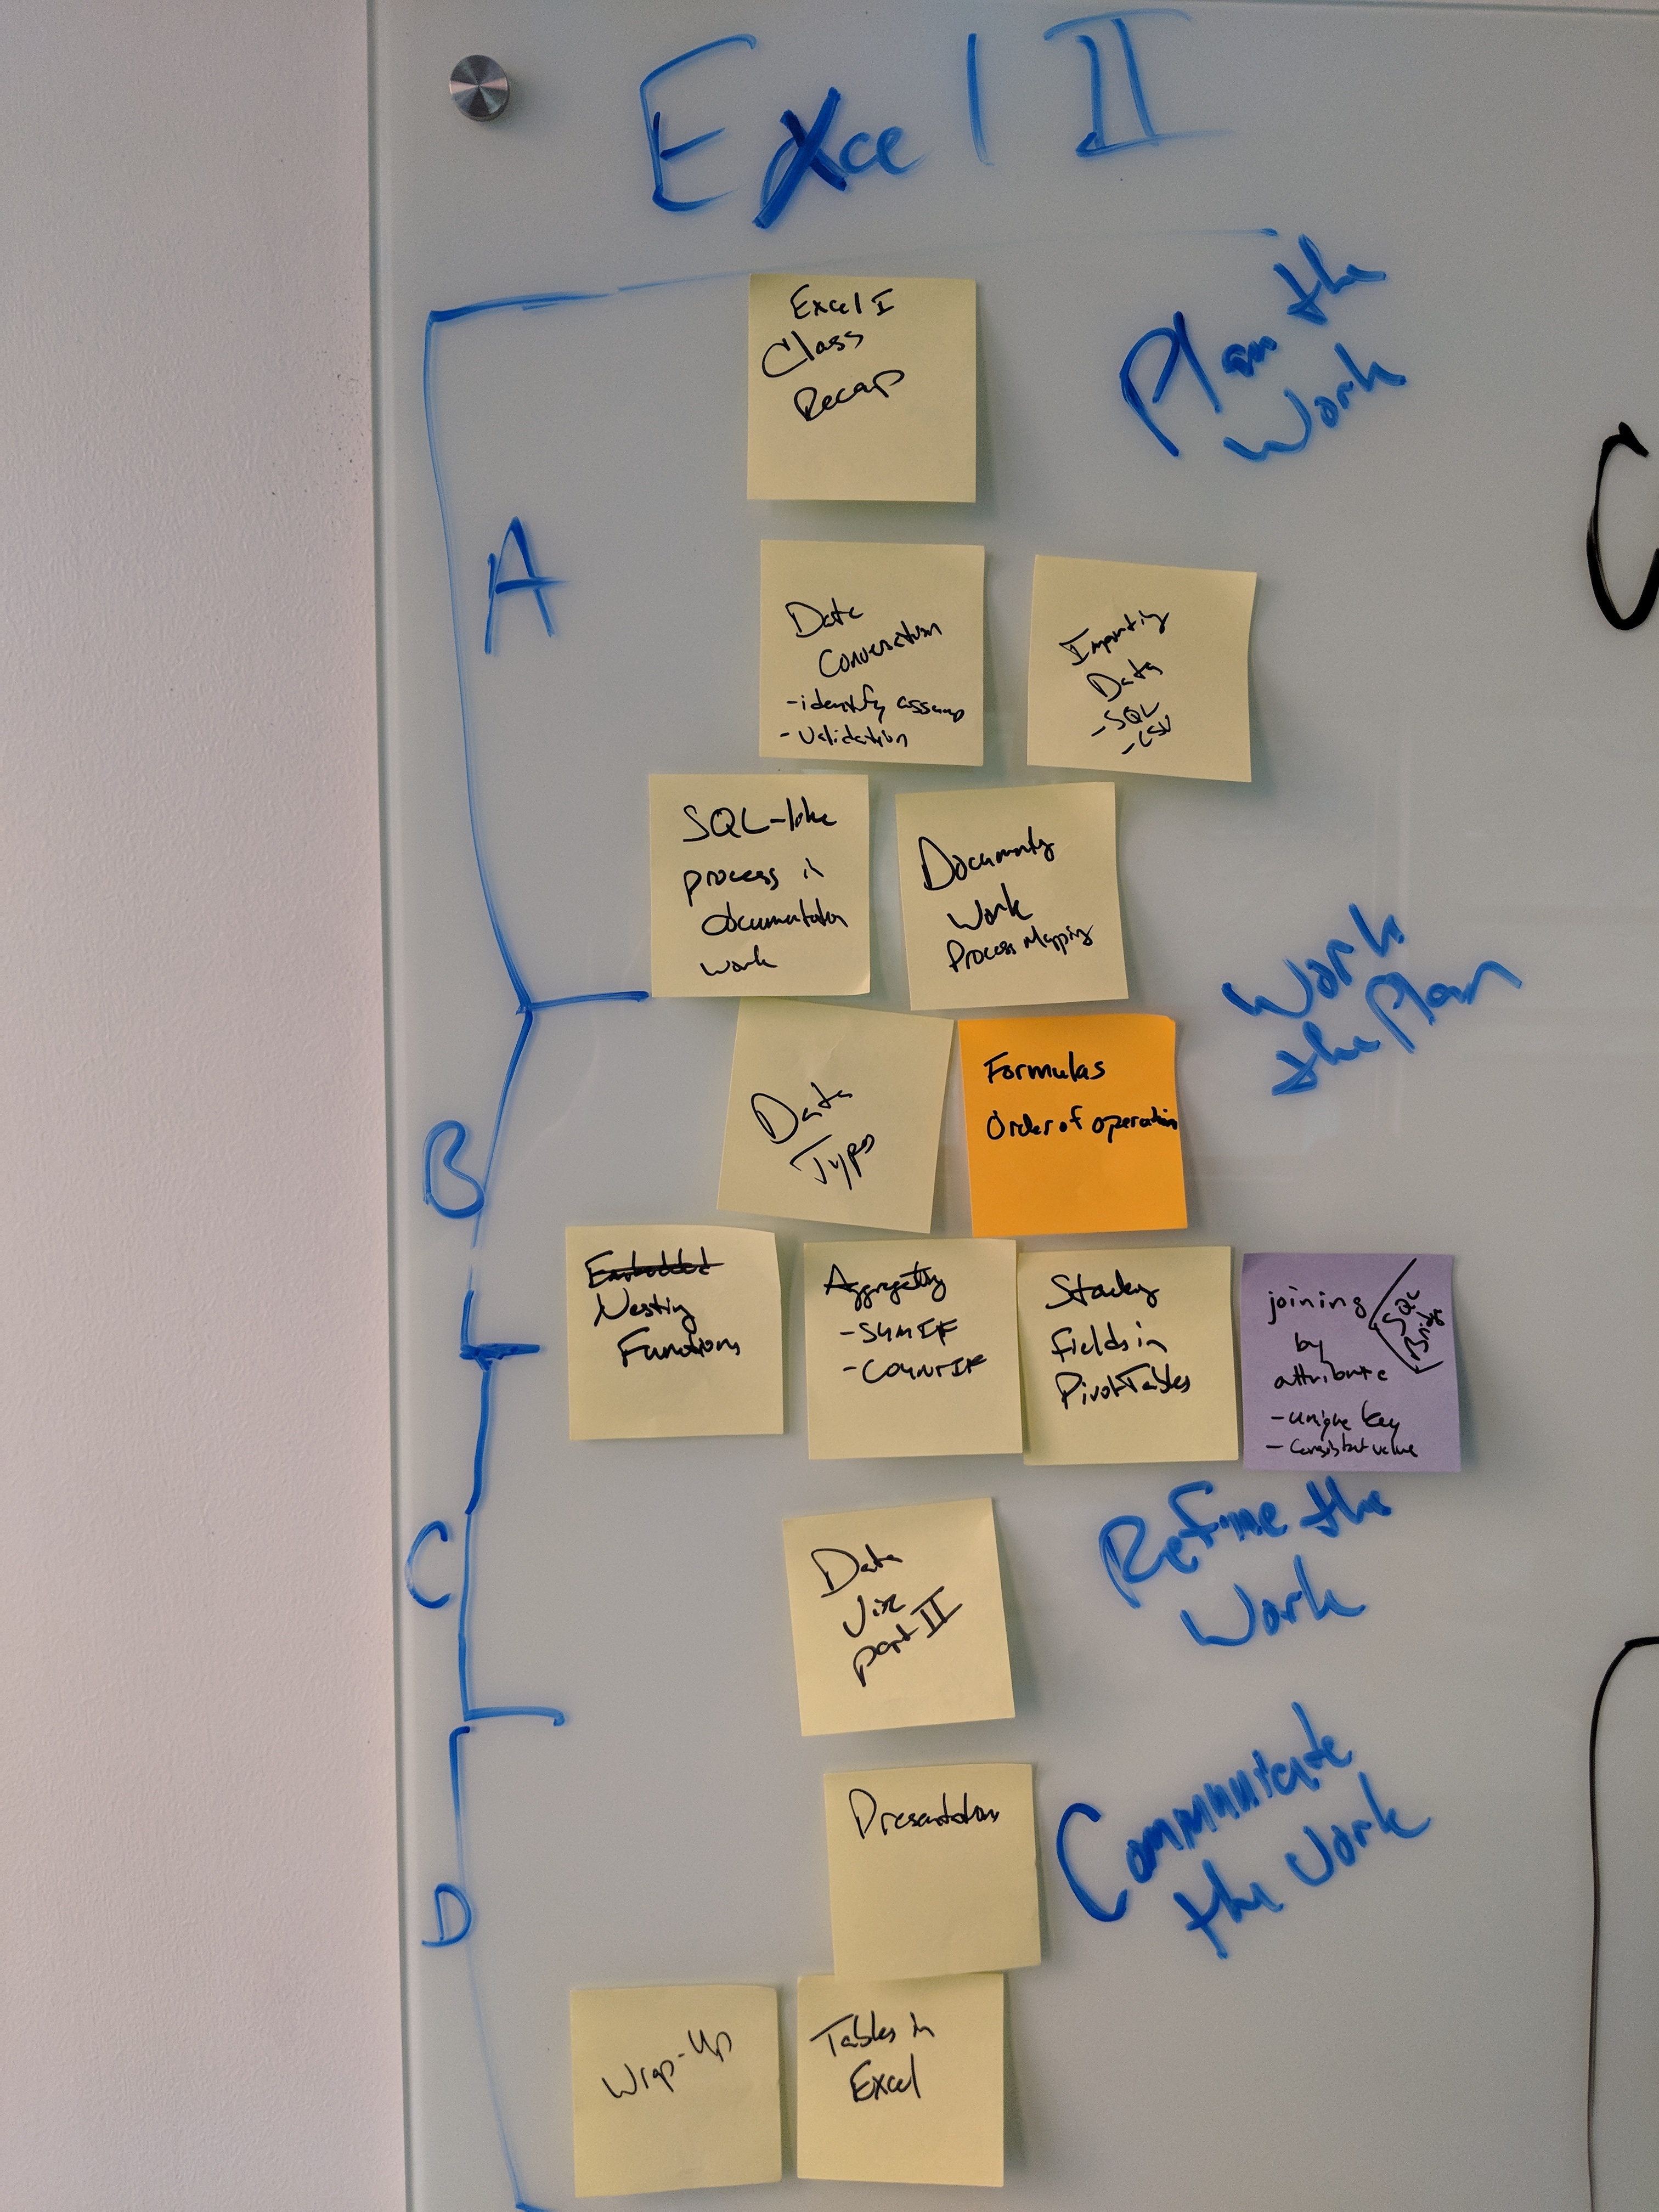 Excel II
Plan the
Work
Excel I
Class
Recap
A
Data
Conversation
-identify assump
- Validation
Importing
Data
- SQL
- CSV
SQL-like
process in
documentation
work
Documenting
Work
Process Mapping
Work
the Plan
B
Data
Types
Formulas
Order of operation
Embedded
Nesting
Functions
Aggregating
- SUMIF
- COUNTIF
Stacking
fields in
PivotTables
joining
by
attribute
- unique key
- Consistent value
SQL
C
Refine the
Work
Data
Viz
part II
D
Communicate
the Work
Presentation
Wrap-Up
Tables in
Excel